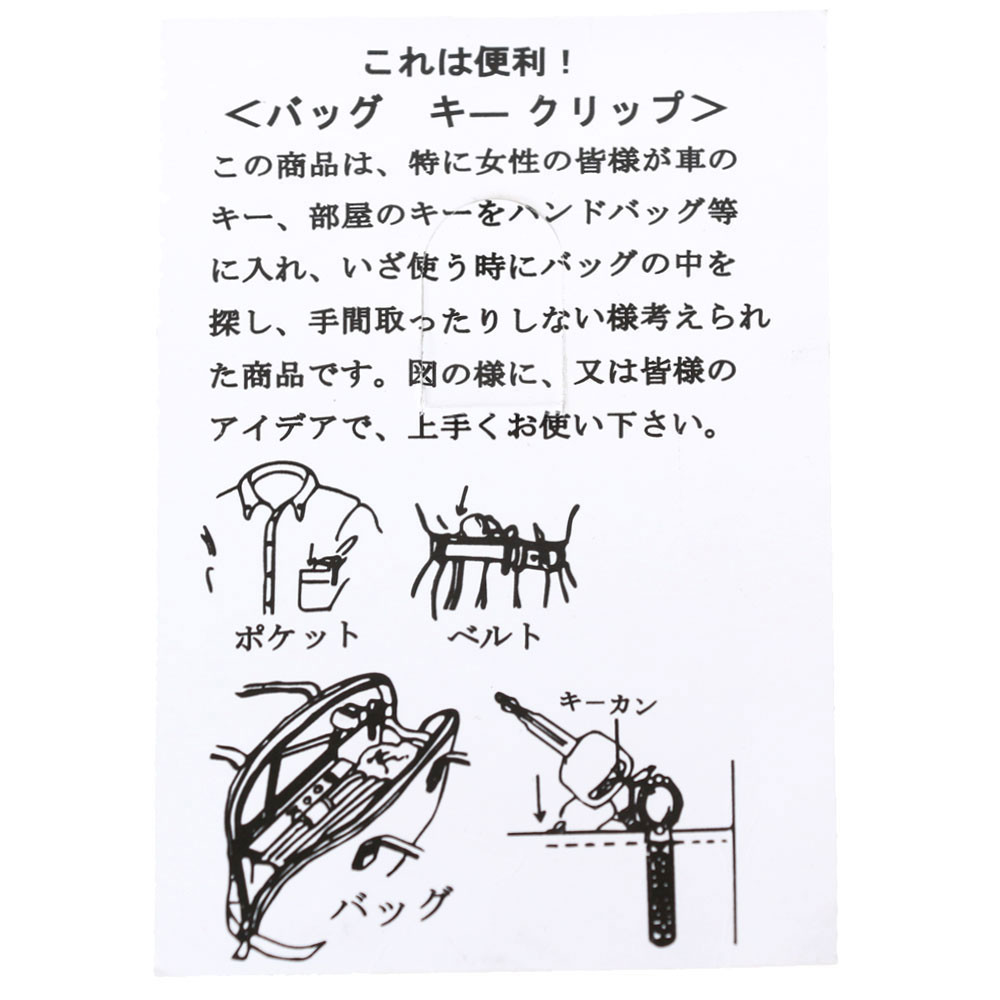 これは便利！
＜バッグ　キー クリップ＞
この商品は、特に女性の皆様が車の
キー、部屋のキーをハンドバッグ等
に入れ、いざ使う時にバッグの中を
探し、手間取ったりしない様考えられ
た商品です。図の様に、又は皆様の
アイデアで、上手くお使い下さい。
ポケット
ベルト
キーカン
バッグ